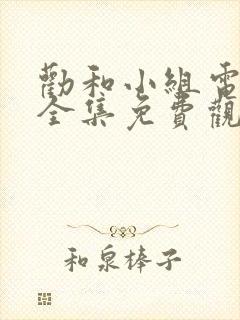 勸和小組電
全集免費觀
和泉棒子